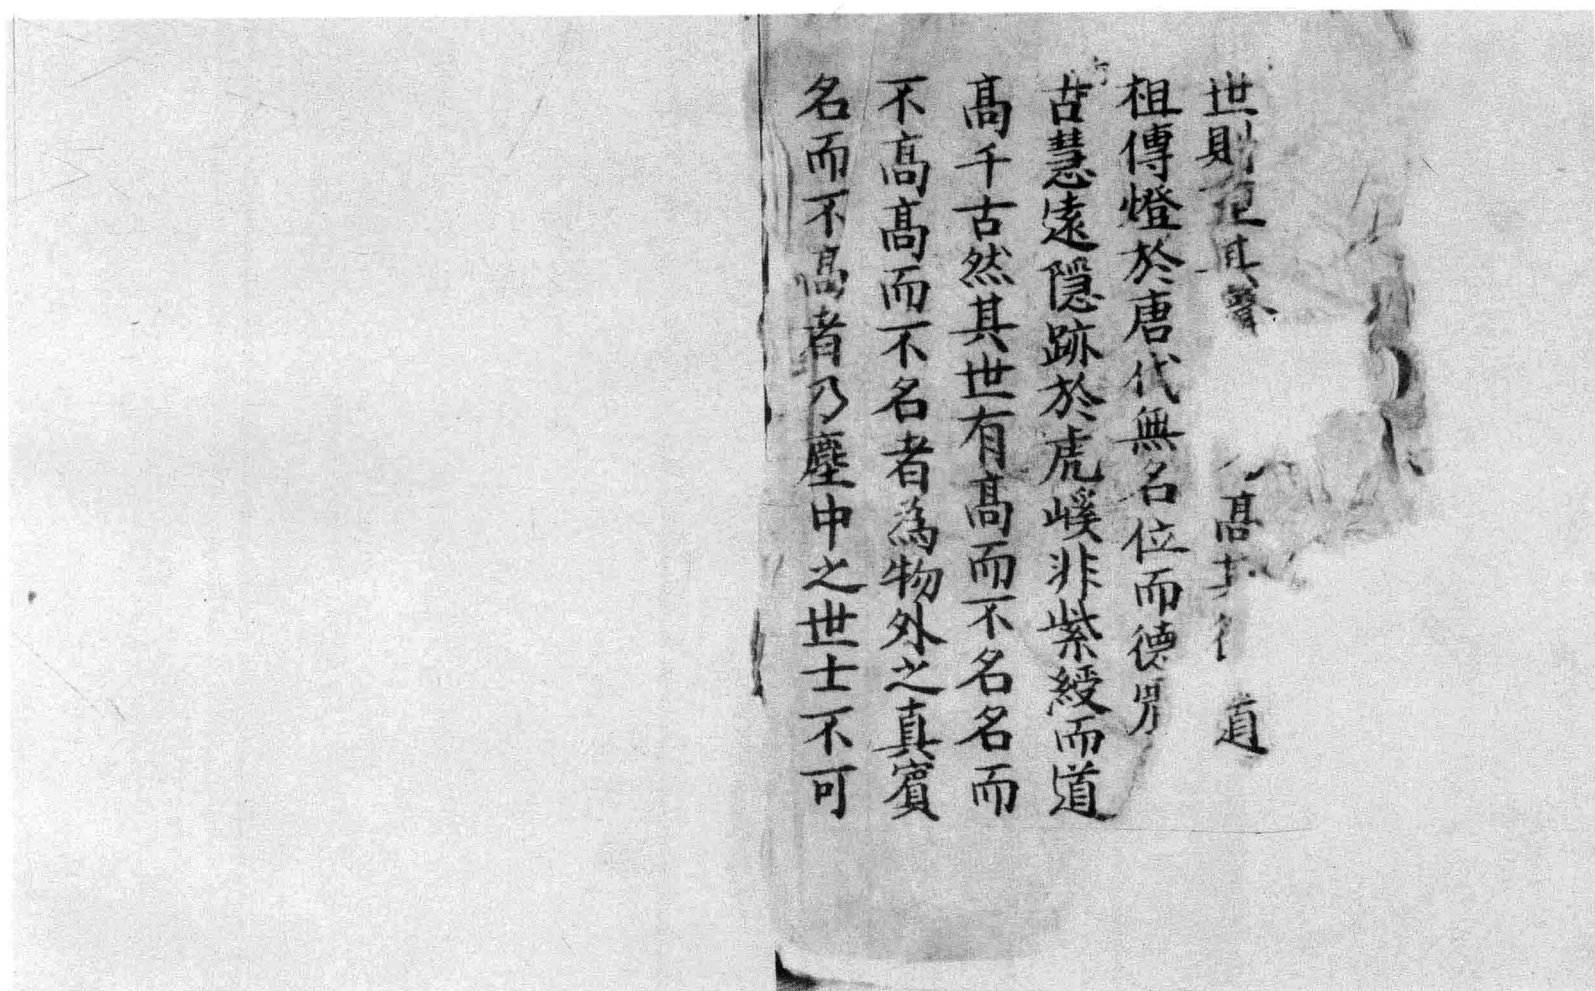 世則 其 高 道
祖傳燈於唐代無名位而德
古慧遠隱跡於虎嵠非紫綬而道
髙千古然其世有髙而不名名而
不髙髙而不名者為物外之真賔
名而不髙者乃塵中之世士不可